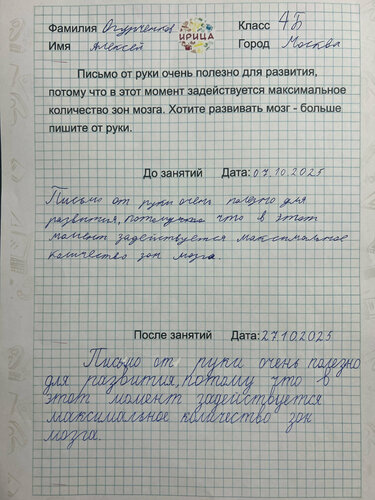 Фамилия Огурченков Класс 4Б
ИРИЦА
Имя Алексей Город Москва
Письмо от руки очень полезно для развития,
потому что в этот момент задействуется максимальное
количество зон мозга. Хотите развивать мозг - больше
пишите от руки.
До занятий Дата: 07.10.2025
Письмо от руки очень полезно для
развития, потому что в этот
момент задействуется максимальное
количество зон мозга.
После занятий Дата: 27.10.2025
Письмо от руки очень полезно
для развития, потому что в
этот момент задействуется
максимальное количество зон
мозга.